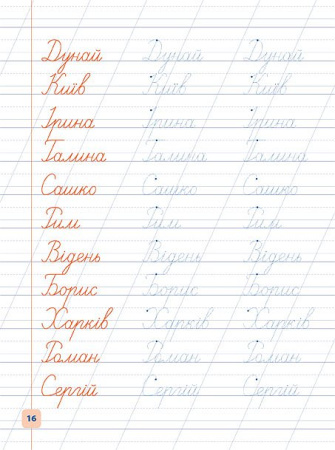 Дунай Дунай Дунай
Київ Київ Київ
Ірина Ірина Ірина
Галина Галина Галина
Сашко Сашко Сашко
Рим Рим Рим
Відень Відень Відень
Борис Борис Борис
Харків Харків Харків
Роман Роман Роман
Сергій Сергій Сергій
16